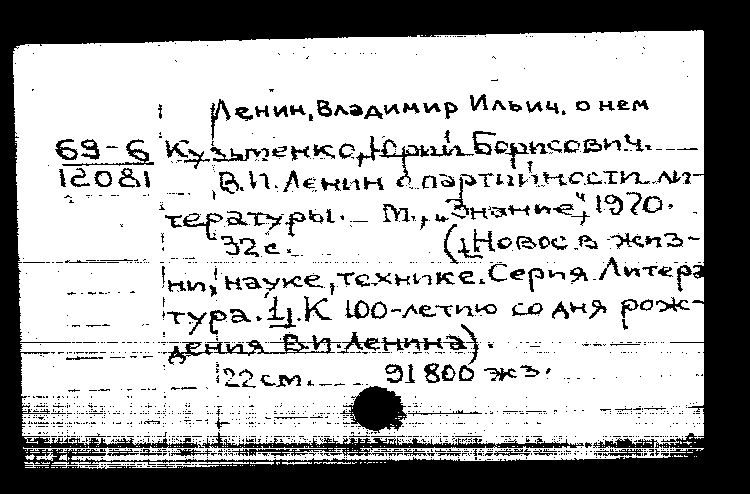 Ленин, Владимир Ильич, о нем
69-6 Кузьменко, Юрий Борисович.
12081 В.И. Ленин о партийности ли-
тературы. М., „Знание", 1970.
32 с. (Новое в жиз-
ни, науке, технике. Серия Литера
тура. 1). К 100-летию со дня рож-
дения В.И. Ленина).
22 см. 91800 экз.